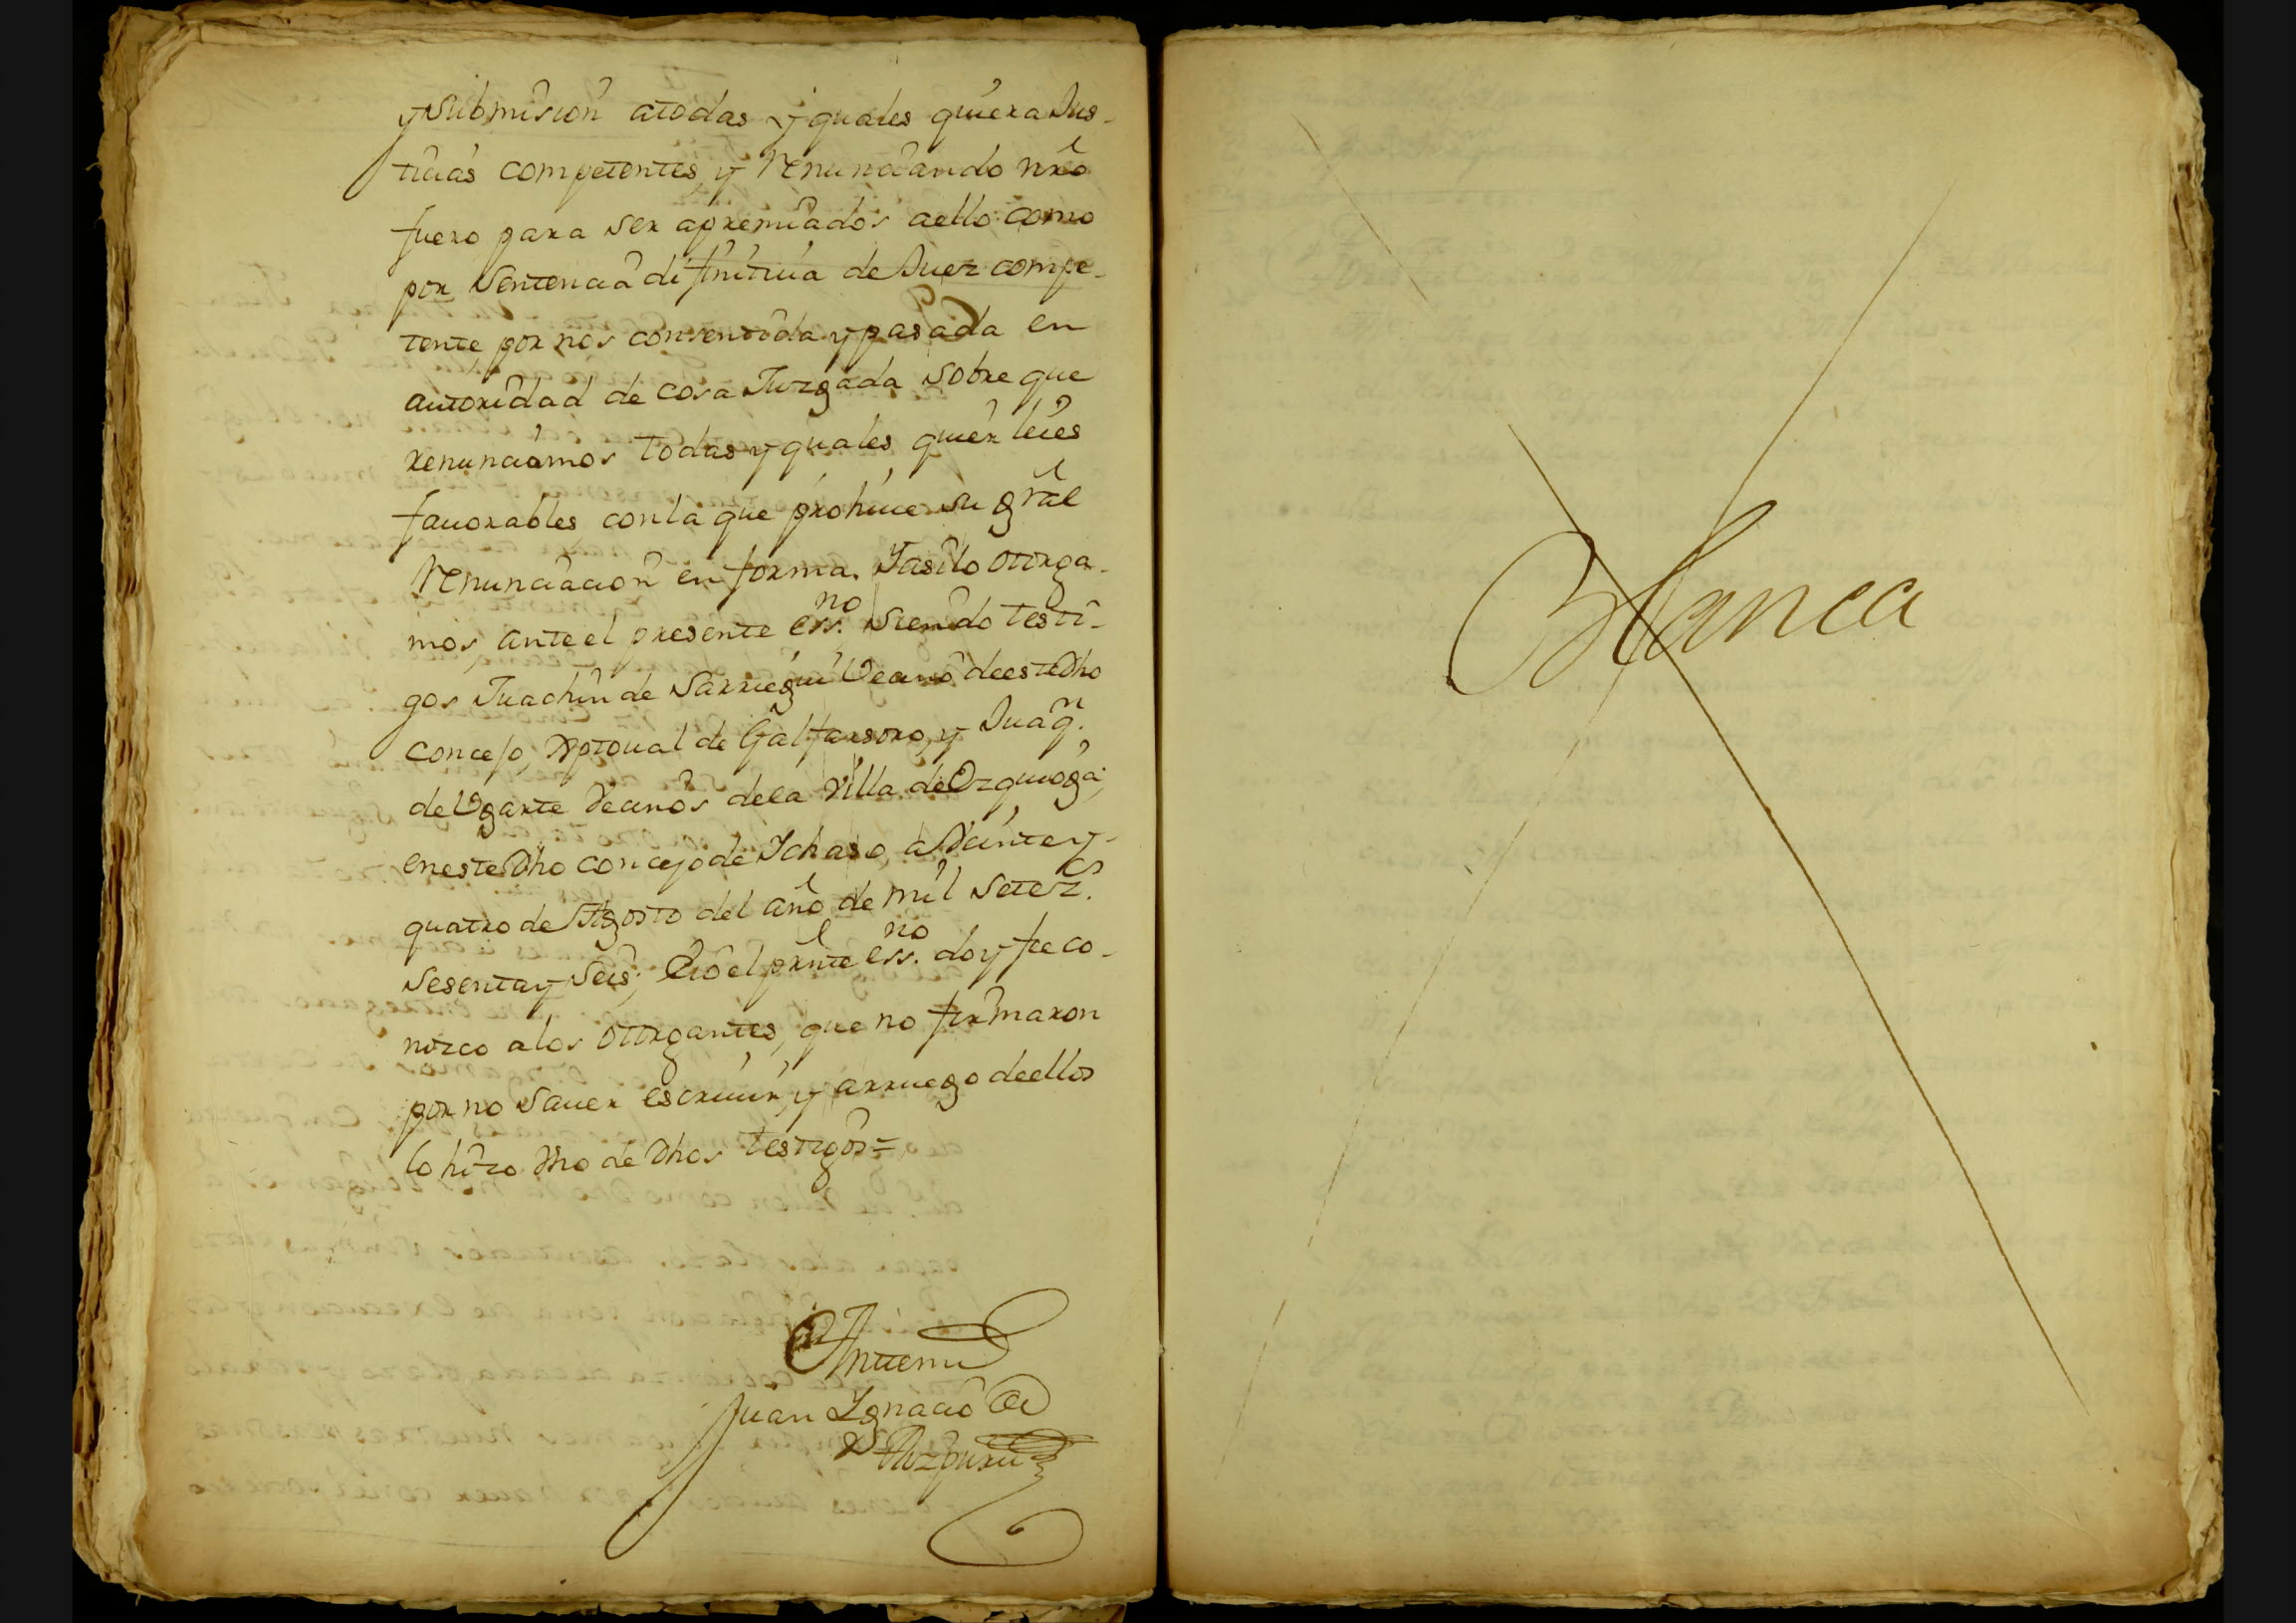 y Submision atodas y quales quiera Jus-
ticias competentes, y Renunciando nrô
fuero para ser apremiados aello como
por Sentencia difinitiua de Juez compe-
tente, por nos consentida y pasada en
autoridad de cosa Juzgada sobre que
renunciamos todas y quales quier leies
fauorables, con la que prohiue su gral
Renunciacion en forma. Y asi lo otorga-
mos, ante el presente ess.no siendo testi-
gos Juachin de Sarriegui Vecino de este Dho
concejo, Xptoual de Galfarsoro, y Juaqn.
de Vgarte Vecinos dela Villa de Ozquioga;
en este Dho concejo de Ichaso, a Veinte y-
quatro de Agosto del año de mil Setezs.
Sesenta y Seis; E io el prnte ess.no doy fee co-
nozco alos otorgantes, que no firmaron
por no Sauer escriuir, y arruego de ellos
lo hizo Vno de Dhos testigos=
Antemi
Juan Ignacio de
Aizpuru
Blanca